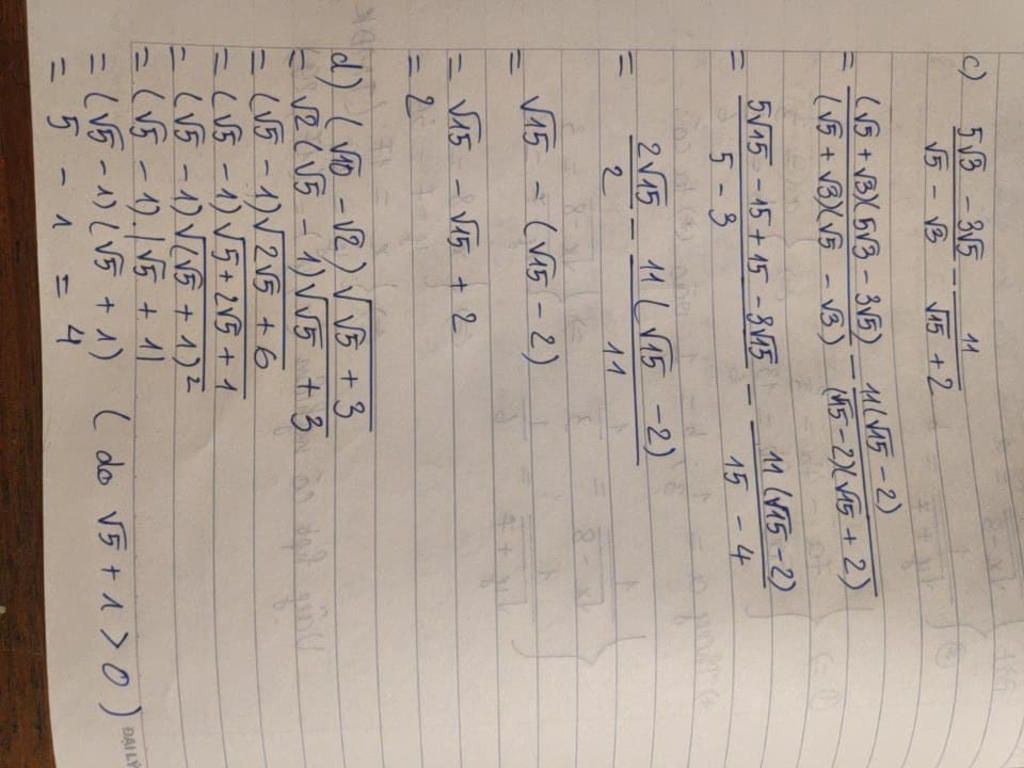 c) (5√3 - 3√5)/(√5 - √3) - 11/(√15 + 2)
= (√5 + √3)(5√3 - 3√5)/(√5 + √3)(√5 - √3) - 11(√15 - 2)/(√15 - 2)(√15 + 2)
= (5√15 - 15 + 15 - 3√15)/(5 - 3) - 11(√15 - 2)/(15 - 4)
= 2√15/2 - 11(√15 - 2)/11
= √15 - (√15 - 2)
= √15 - √15 + 2
= 2
d) (√10 - √2)√(√5 + 3)
= √2(√5 - 1)√(√5 + 3)
= (√5 - 1)√(2√5 + 6)
= (√5 - 1)√(5 + 2√5 + 1)
= (√5 - 1)√((√5 + 1)²)
= (√5 - 1).|√5 + 1|
= (√5 - 1)(√5 + 1) (do √5 + 1 > 0)
= 5 - 1 = 4
DAILY